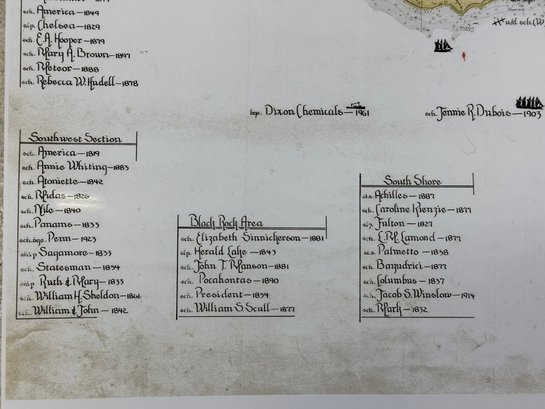 sch. America—1849
slp. Chelsea—1829
sch. E.A. Hooper—1879
sch. Mary A. Brown—1897
sch. Meteor—1888
sch. Rebecca W. Hudell—1878
sch.
bge. Dixon Chemicals—1961
sch. Jennie R. Dubois—1903
Southwest Section
sch. America—1819
sch. Annie Whiting—1883
sch. Atoniette—1842
sch. Midas—1826
sch. Nile—1840
sch. Panams—1833
sch.bge. Penn—1923
ship Sagamore—1833
sch. Statesman—1854
ship Ruth & Mary—1833
sch. William H. Sheldon—1866
sch. William & John—1842
Black Rock Area
sch. Elizabeth Sinnickerson—1881
slp. Herald Lake—1843
sch. John T. Manson—1881
sch. Pocahontas—1890
sch. President—1854
sch. William S. Scull—1877
South Shore
Achilles—1887
sch. Caroline Kienzie—1877
slp. Fulton—1827
Lamond—1877
Palmetto—1858
sch. 1877
sch. Columbus—1837
sch. Jacob S. Winslow—1914
sch. Mark—1832